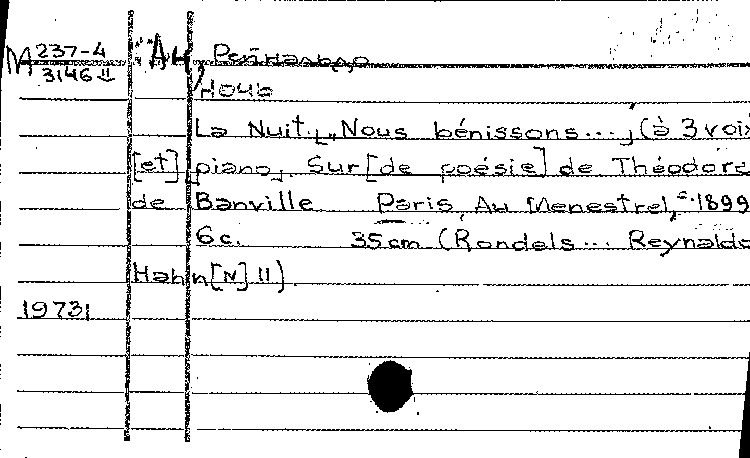 М 237-4 Ан, Рейнальдо
3146 11
Ночь
La Nuit. „Nous bénissons..." (à 3 voix
[et] piano) Sur [de poésie] de Théodore
de Banville Paris, Au Menestrel, c. 1899
6 c. 35 cm (Rondels... Reynaldo
Hahn [N] 11).
19731